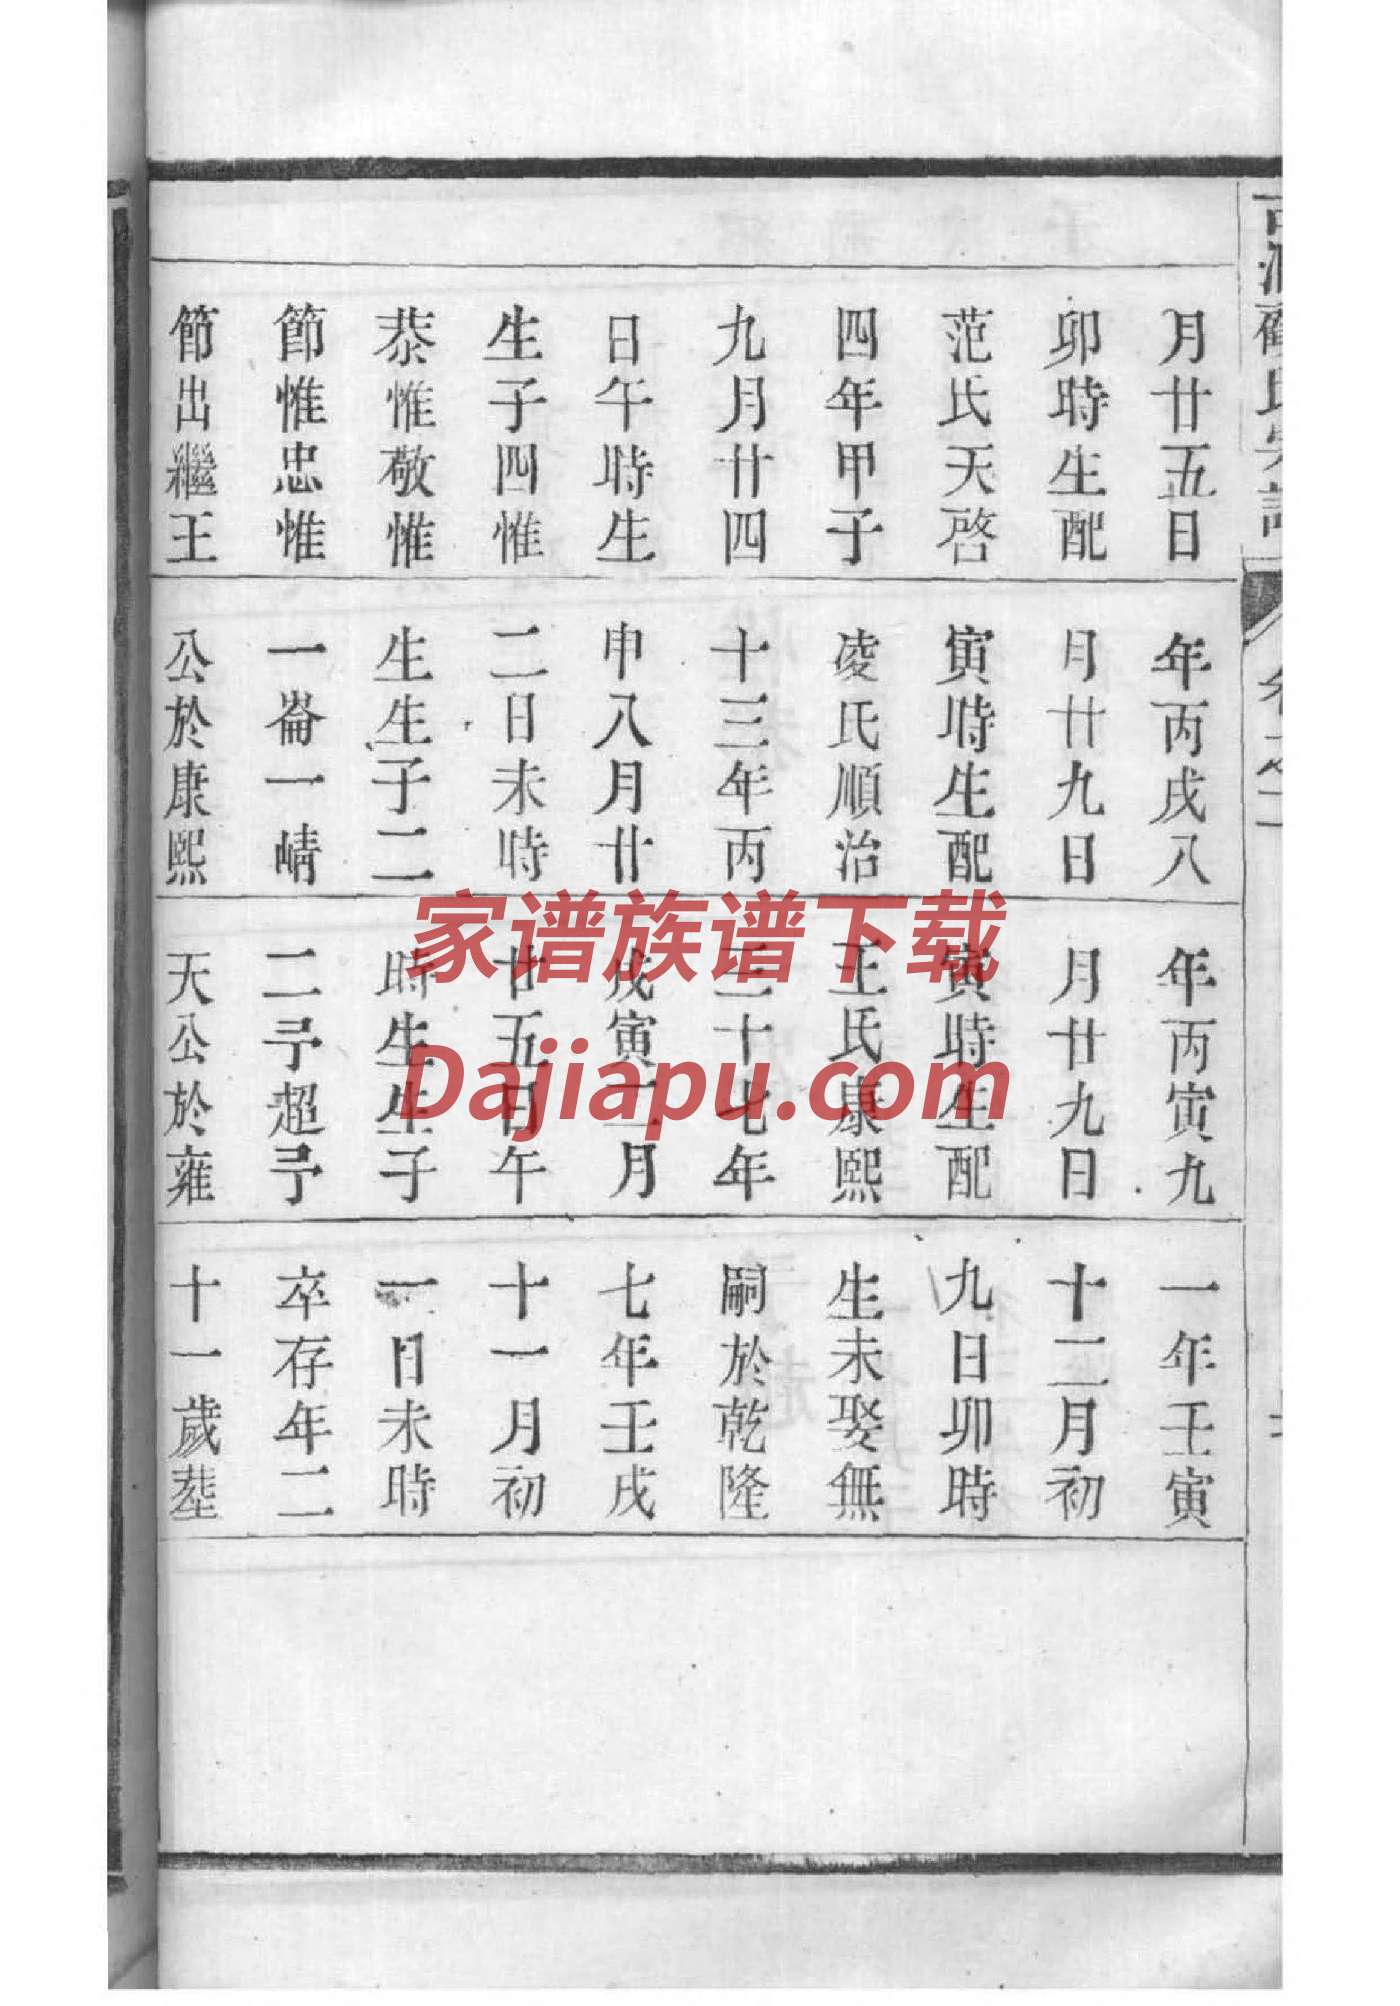 月廿五日
卯時生配
范氏天啓
四年甲子
九月廿四
日午時生
生子四惟
恭惟敬惟
節惟忠惟
節出繼王
年丙戌八
月廿九日
寅時生配
凌氏順治
十三年丙
申八月廿
二日未時
生生子二
一崙一崝
公於康熙
年丙寅九
月廿九日
寅時生配
王氏康熙
三十七年
戊寅二月
廿五日午
時生生子
二予超予
天公於雍
一年壬寅
十二月初
九日卯時
生未娶無
嗣於乾隆
七年壬戌
十一月初
一日未時
卒存年二
十一歲塟
家谱族谱下载
Dajiapu.com